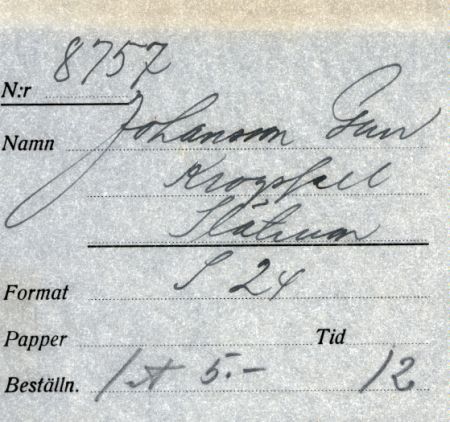 N:r 8757
Namn Johansson Gun
Krogsfall
Slätmon
Format S 24
Papper Tid
Beställn. 1 st 5.- 12